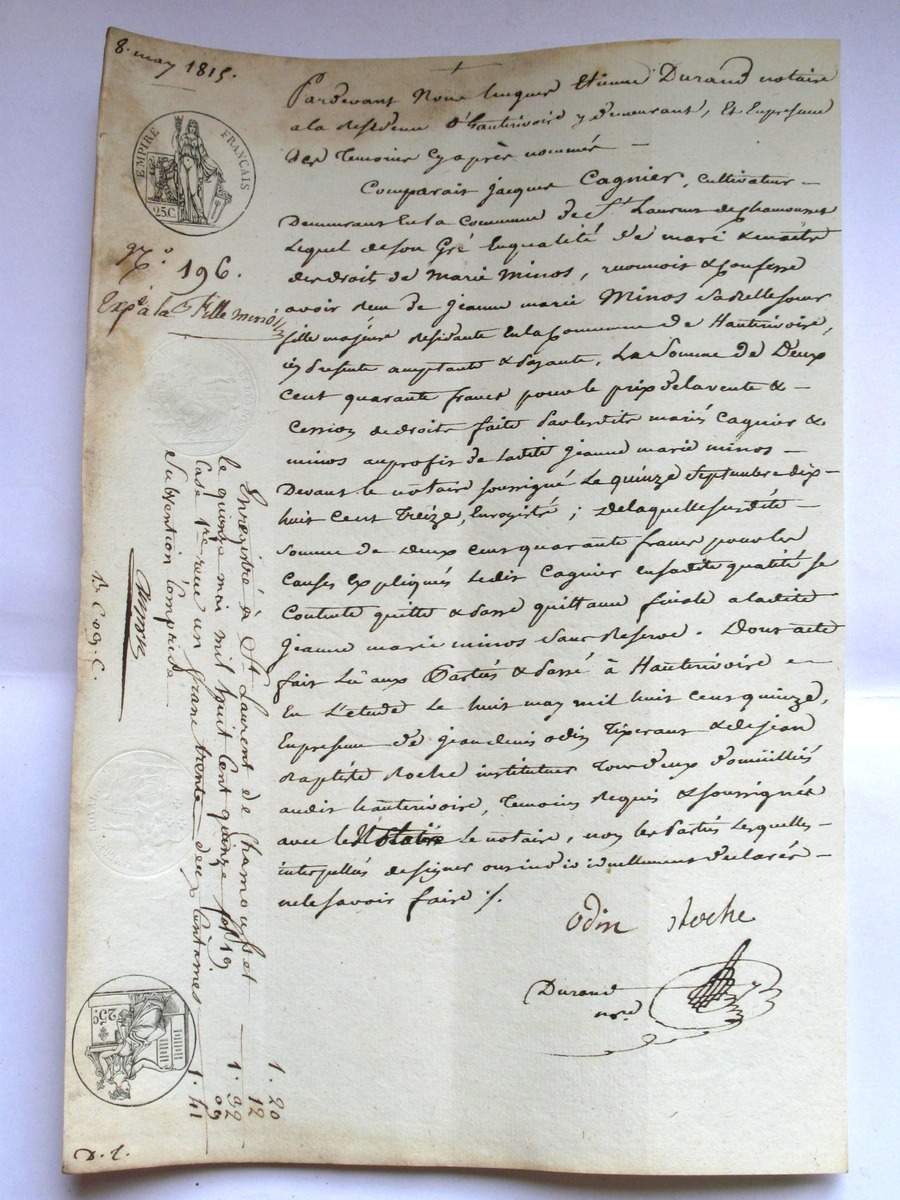 8. may 1815.
EMPIRE FRANÇAIS
25.C
N.o 196.
Expé. à la d. fille minos
Pardevant Nous Etienne Durand notaire
a la Residence d'hauterivoire y demeurant, Et En presence
des Temoins cy après nommés —
Comparait jacques Cagnier, Cultivateur —
Demeurant En la Commune de St Laurent de chamousset
Lequel de son Gré En qualité de mari & maitre
des droits de Marie Minos, reconnoit & Confesse
avoir Reçu de jeanne marie Minos sa Belle sœur
fille majeure Residante En la Commune de Hauterivoire,
icy Presente acceptante & , La Somme de Deux
Cent quarante francs pour le prix de la vente & —
Cession de droits faite Par lesdits mariés Cagnier &
minos au profit de Ladite jeanne marie minos —
Devant le notaire soussigné Le quinze Septembre dix —
huit Cent Treize, Enregistré ; De laquelle susdite —
Somme de Deux cent quarante francs pour les
Causes Expliqués Ledit Cagnier En sadite qualité se
Contente quitte & Passe quittance finale a ladite
jeanne marie minos Sans Reserve. Dont acte
fait Lû aux Partiés & Passé à Hauterivoire —
En L'etude Le huit may mil huit cent quinze,
En presence de jean denis odin Tixerant & de jean
Baptiste Roche instituteur Tous deux domicilliés
audit hauterivoire, Temoins Requis & soussignés
avec le Notaire Le notaire, non les Partiés Lesquelles
interpellés de signer ont individuellement declarés —
ne le savoir faire ./.
Odin Roche
Durand
nore
Enregistré à St Laurent de chamousset
le quinze mai mil huit cent quinze fol 19
Case 1re reçu un franc trente deux Centimes
Subvention Comprise
1. 20
12
1. 32
09
1. 41
25.C
D. L.